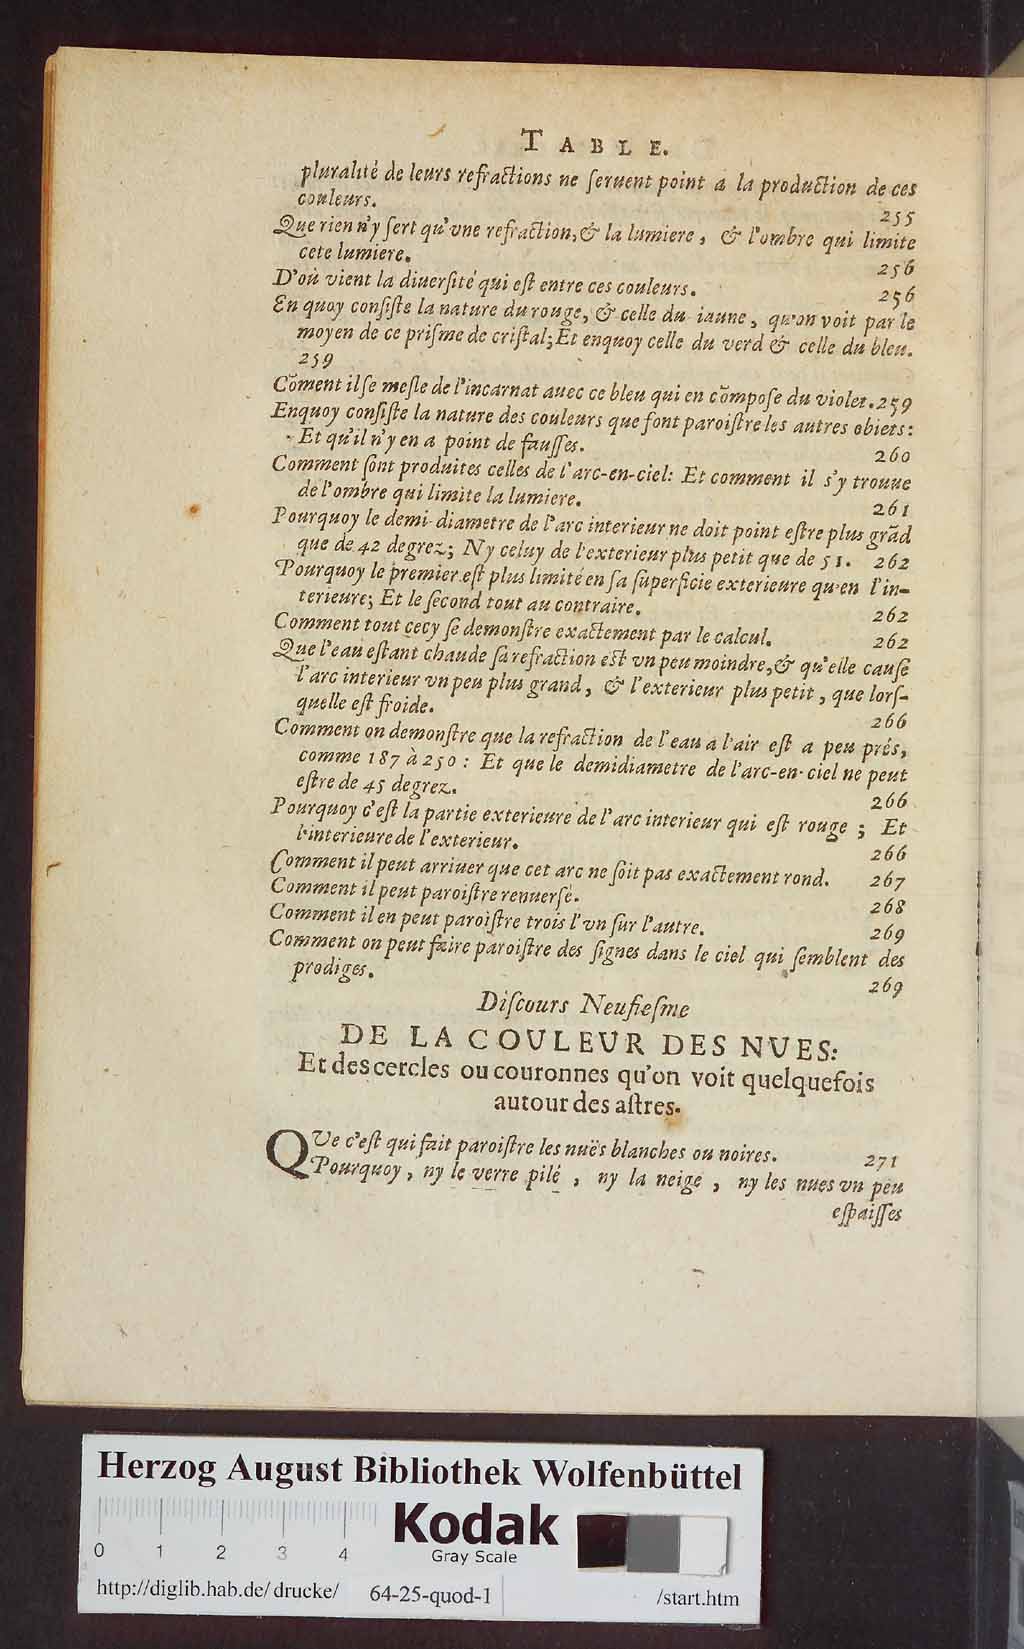 TABLE.
pluralité de leurs refractions ne seruent point a la production de ces
couleurs. 255
Que rien n'y sert qu'vne refraction, & la lumiere, & l'ombre qui limite
cete lumiere. 256
D'où vient la diuersité qui est entre ces couleurs. 256
En quoy consiste la nature du rouge, & celle du iaune, qu'on voit par le
moyen de ce prisme de cristal; Et enquoy celle du verd & celle du bleu.
259
Cõment il se mesle de l'incarnat auec ce bleu qui en cõpose du violet. 259
Enquoy consiste la nature des couleurs que font paroistre les autres obiets:
Et qu'il n'y en a point de fausses. 260
Comment sont produites celles de l'arc-en-ciel: Et comment il s'y trouue
de l'ombre qui limite la lumiere. 261
Pourquoy le demi-diametre de l'arc interieur ne doit point estre plus grãd
que de 42 degrez; Ny celuy de l'exterieur plus petit que de 51. 262
Pourquoy le premier est plus limité en sa superficie exterieure qu'en l'in-
terieure; Et le second tout au contraire. 262
Comment tout cecy se demonstre exactement par le calcul. 262
Que l'eau estant chaude sa refraction est vn peu moindre, & qu'elle cause
l'arc interieur vn peu plus grand, & l'exterieur plus petit, que lors-
quelle est froide. 266
Comment on demonstre que la refraction de l'eau a l'air est a peu prés,
comme 187 à 250: Et que le demidiametre de l'arc-en-ciel ne peut
estre de 45 degrez. 266
Pourquoy c'est la partie exterieure de l'arc interieur qui est rouge; Et
l'interieure de l'exterieur. 266
Comment il peut arriuer que cet arc ne soit pas exactement rond. 267
Comment il peut paroistre renuersé. 268
Comment il en peut paroistre trois l'vn sur l'autre. 269
Comment on peut faire paroistre des signes dans le ciel qui semblent des
prodiges. 269
Discours Neufiesme
DE LA COVLEVR DES NVES:
Et des cercles ou couronnes qu'on voit quelquefois
autour des astres.
QVe c'est qui fait paroistre les nuës blanches ou noires. 271
Pourquoy, ny le verre pilé, ny la neige, ny les nues vn peu
espaisses
Herzog August Bibliothek Wolfenbüttel
Kodak
Gray Scale
0 1 2 3 4
http://diglib.hab.de/drucke/ 64-25-quod-1 /start.htm